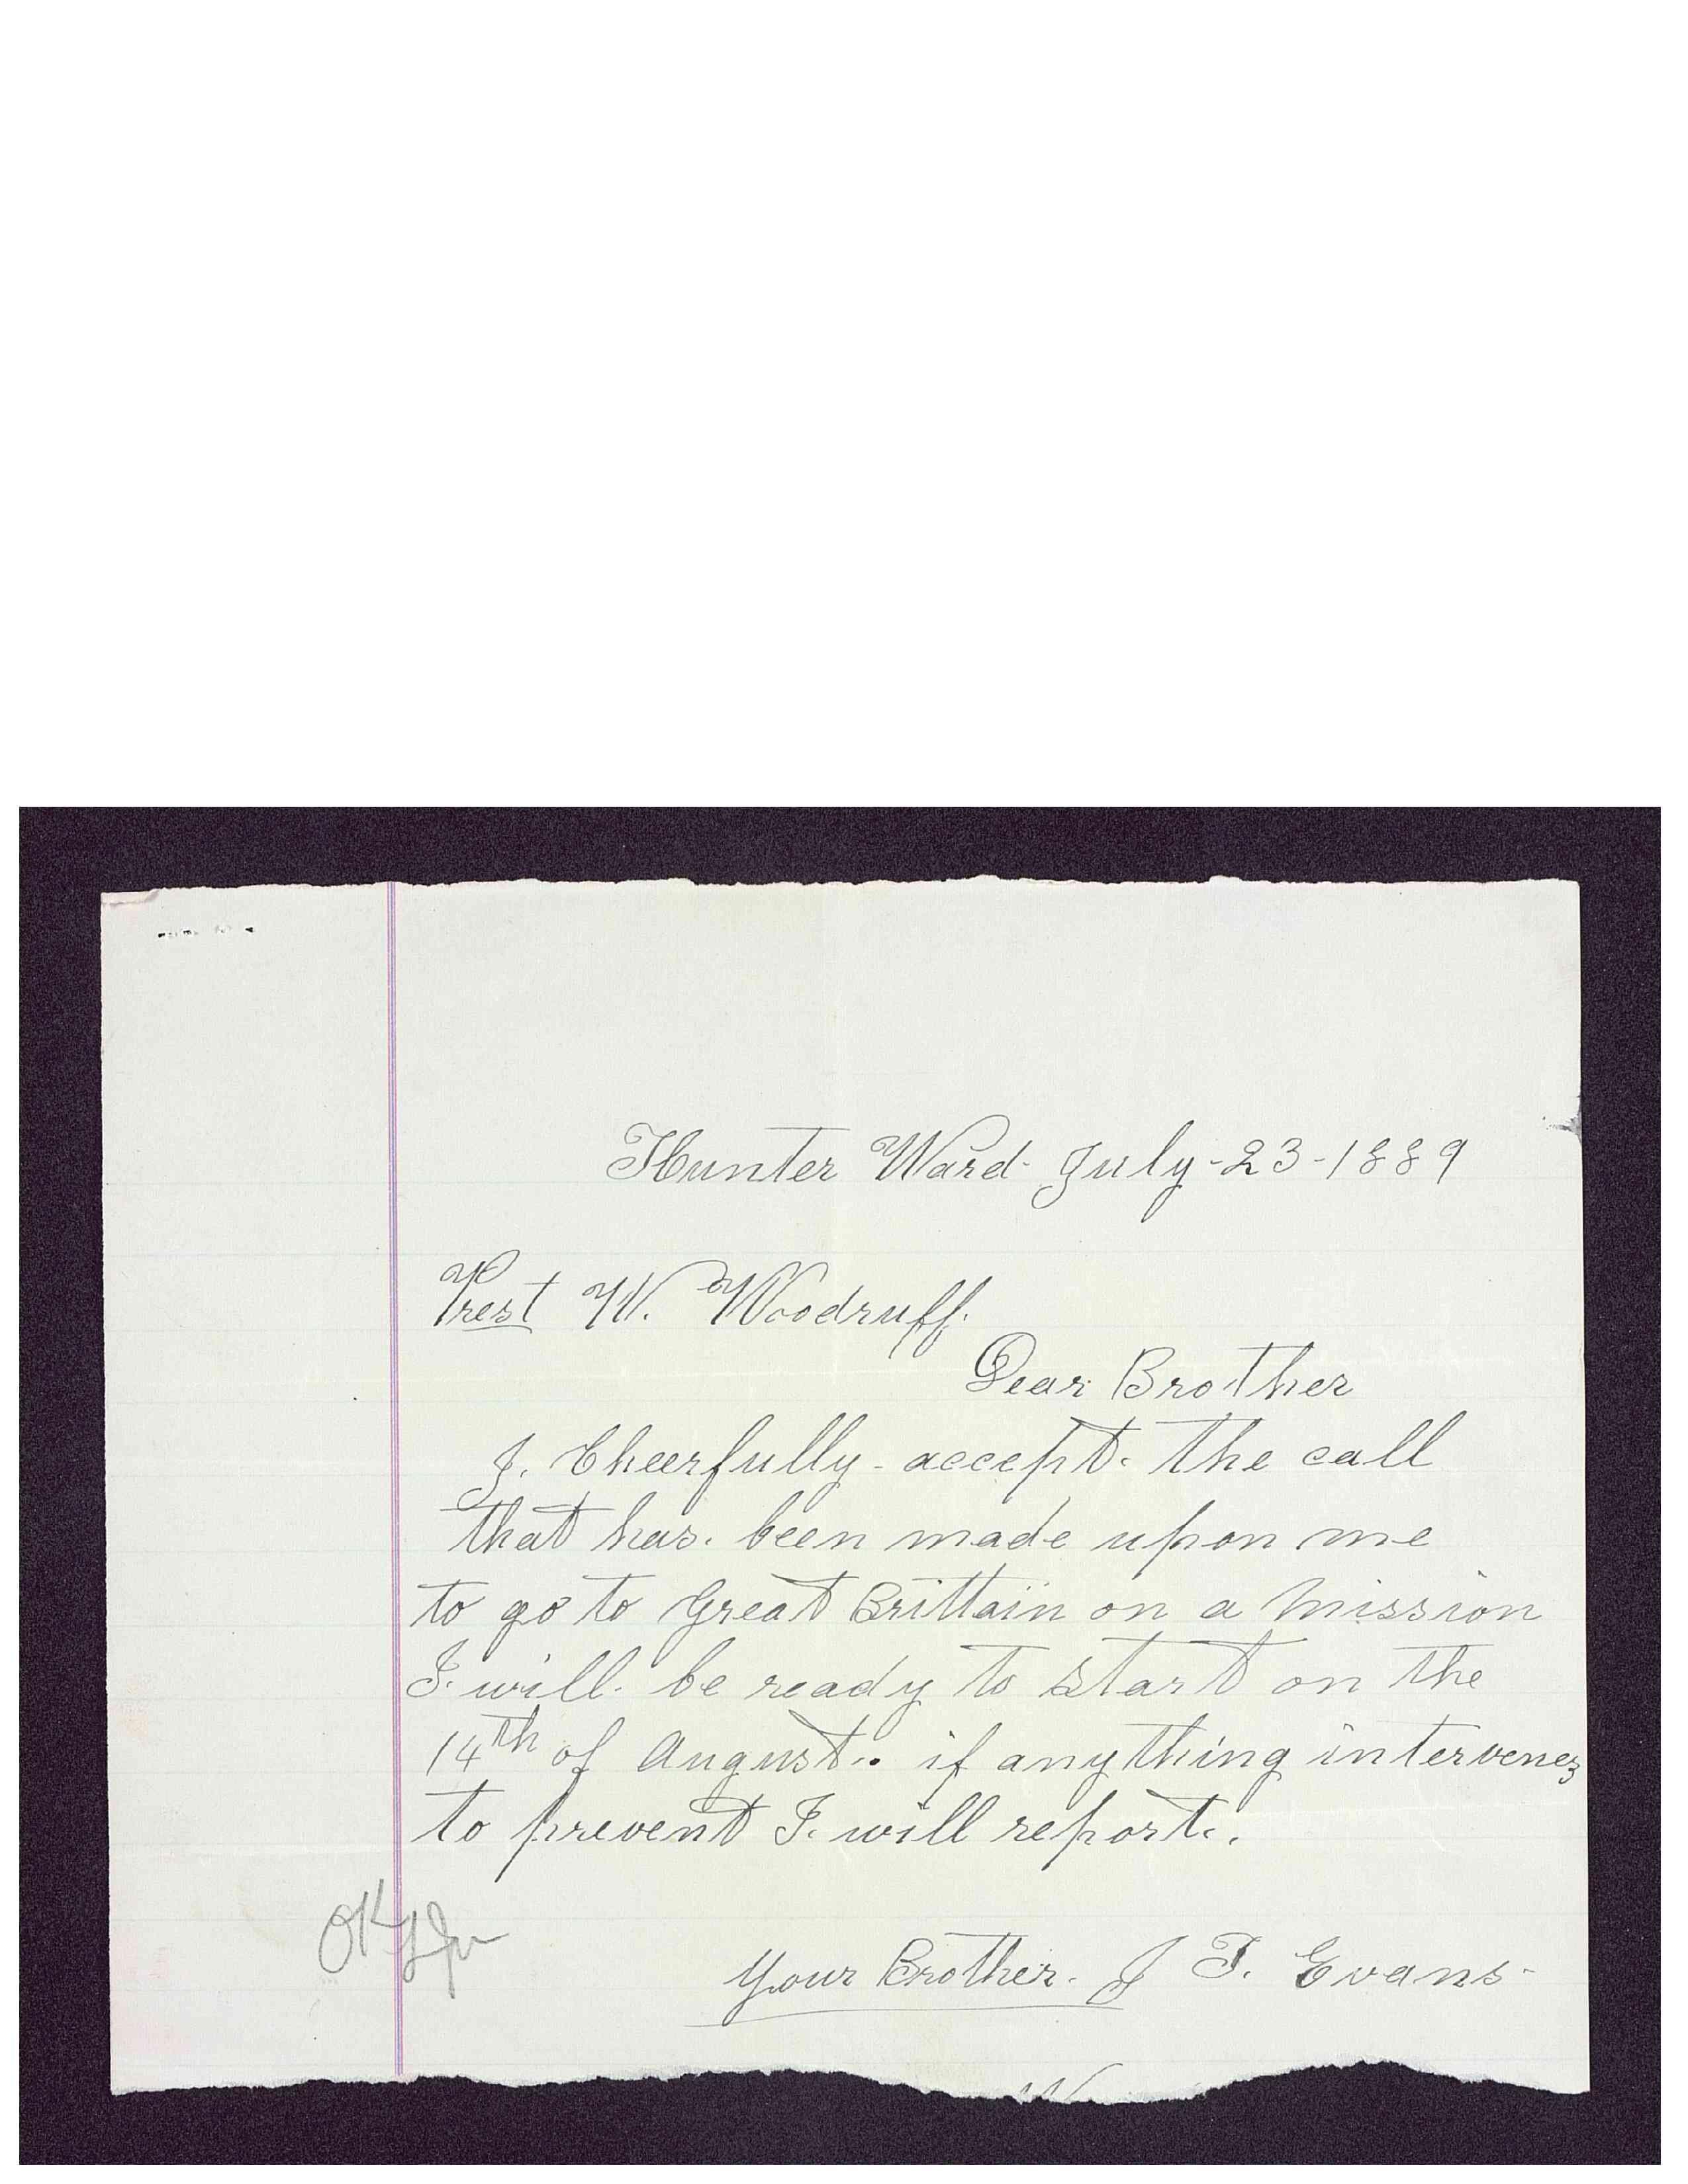 Hunter Ward - July - 23 - 1889
Prest W. Woodruff.
Dear Brother
I. Cheerfully - accept. the call
that has. been made upon me
to go to Great Brittain on a Mission
I. will. be ready to start on the
14th of August.. if any thing intervenes
to prevent I. will report..
OK
Your Brother. J T. Evans -